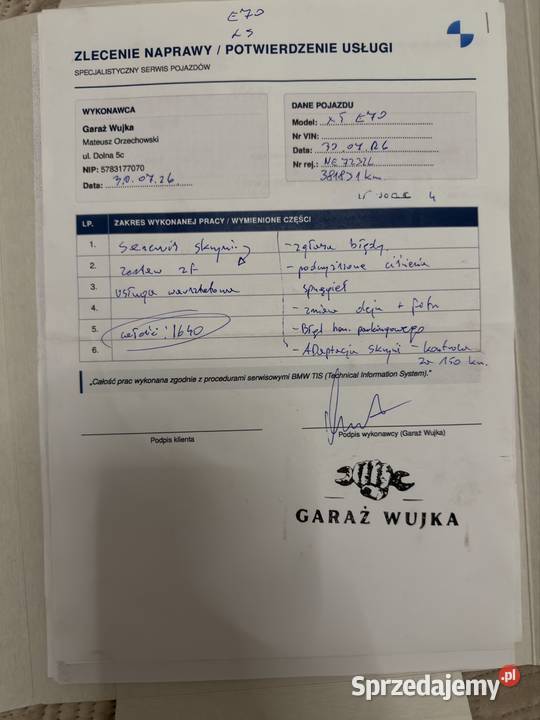 E70
ZLECENIE NAPRAWY / POTWIERDZENIE USŁUGI
SPECJALISTYCZNY SERWIS POJAZDÓW
WYKONAWCA
Garaż Wujka
Mateusz Orzechowski
ul. Dolna 5c
NIP: 5783177070
Data: 30.07.26.
DANE POJAZDU
Model: X5 E70
Nr VIN:
Data: 30.07.26
Nr rej.:
km
LP. ZAKRES WYKONANEJ PRACY / WYMIENIONE CZĘŚCI
1. Serwis skrzyni - zgłasza błędy
2. zestaw zf - podwyższone ciśnienia
3. usługa warsztatowa sprzęgieł
4. - zmiana oleju + filtr
5. całość: 1640 - Błąd ham. parkingowego
6. - Adaptacja skrzyni - kontrola
za 150 km.
„Całość prac wykonana zgodnie z procedurami serwisowymi BMW TIS (Technical Information System).”
Podpis klienta
Podpis wykonawcy (Garaż Wujka)
GARAŻ WUJKA
Sprzedajemy.pl